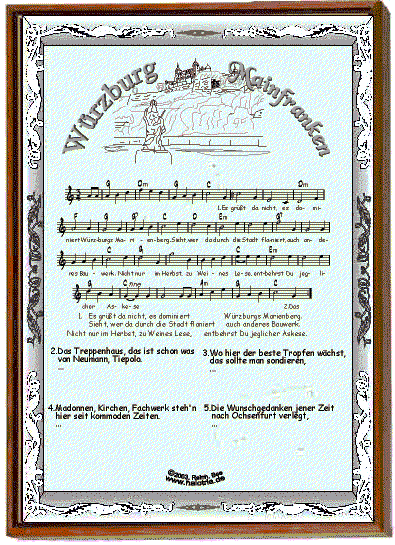 Würzburg Mainfranken
G Dm G C Dm
1.Es grüßt da nicht, es do- mi-
F G G⁷ C D Em G⁷
niert Würzburgs Ma- ri - en-berg. Sieht, wer da durch die Stadt flaniert, auch an- de-
C G C Em
res Bau - werk. Nicht nur im Herbst, zu Wei - nes Le-se, ent-behrst Du jeg- li-
G C fine Am G C
cher As- ke- se 2.Das
1. Es grüßt da nicht, es dominiert Würzburgs Marienberg.
Sieht, wer da durch die Stadt flaniert auch anderes Bauwerk.
Nicht nur im Herbst, zu Weines Lese, entbehrst Du jeglicher Askese.
2.Das Treppenhaus, das ist schon was
von Neumann, Tiepolo.
...
3.Wo hier der beste Tropfen wächst,
das sollte man sondieren,
...
4.Madonnen, Kirchen, Fachwerk steh'n
hier seit kommoden Zeiten.
...
5.Die Wunschgedanken jener Zeit
nach Ochsenfurt verlegt,
...
©2003, Ralph, Bee